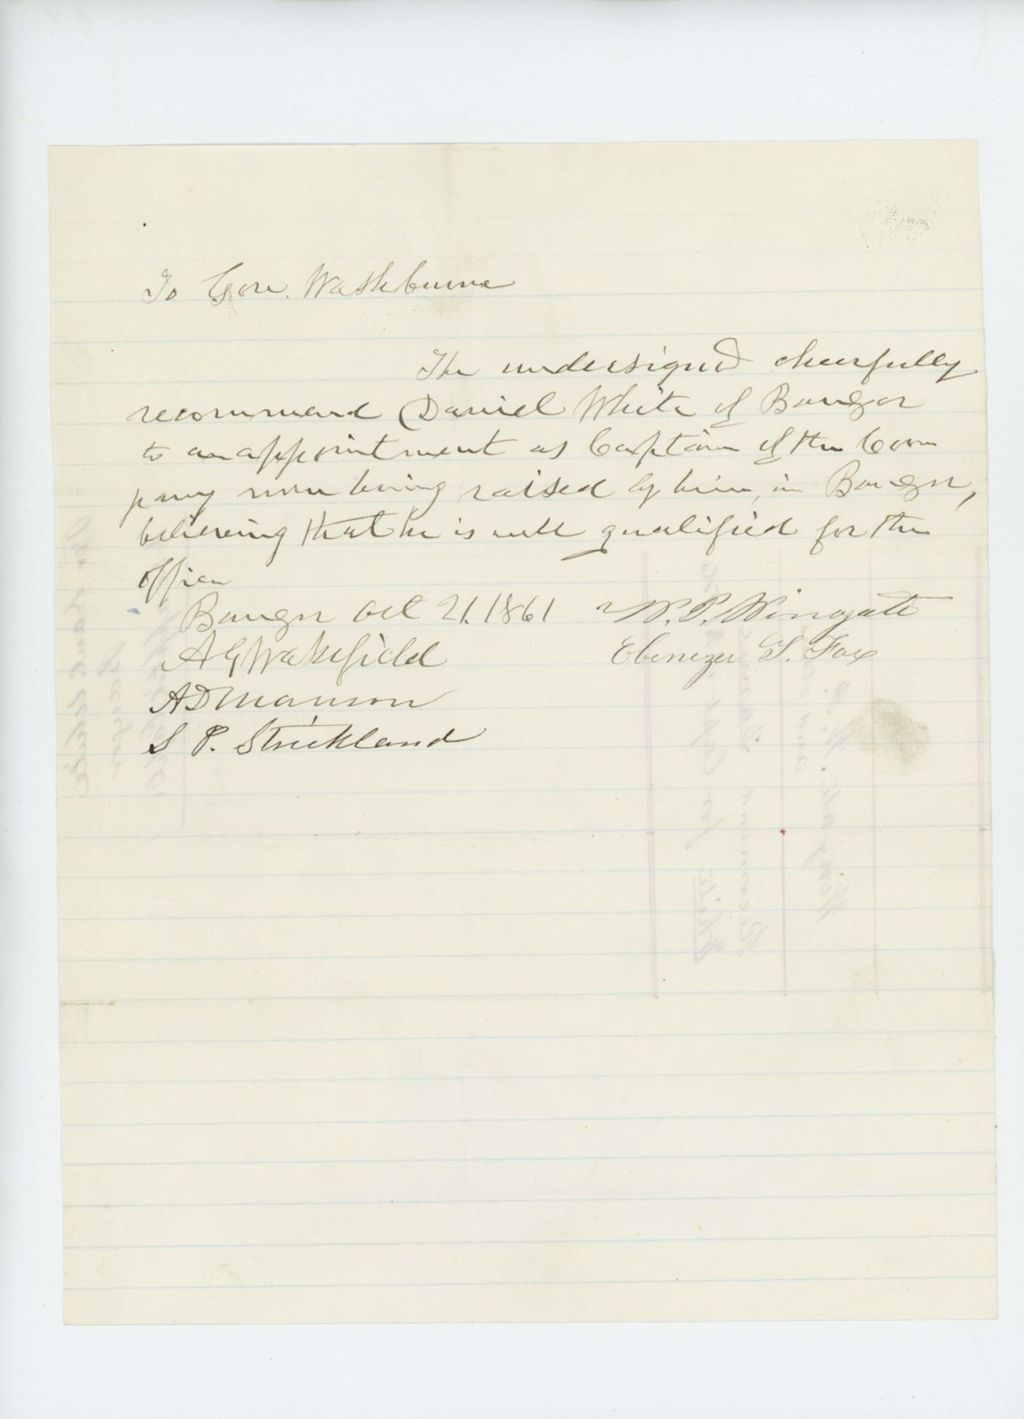 To Gov. Washburne
The undersigned cheerfully
recommend Daniel White of Bangor
to an appointment as Captain of the Com
pany now being raised by him, in Bangor,
believing that he is well qualified for the
office
Bangor Oct 21. 1861
W. P. Wingate
A G Wakefield
Ebenezer T. Fox
A D Manson
S P. Strickland